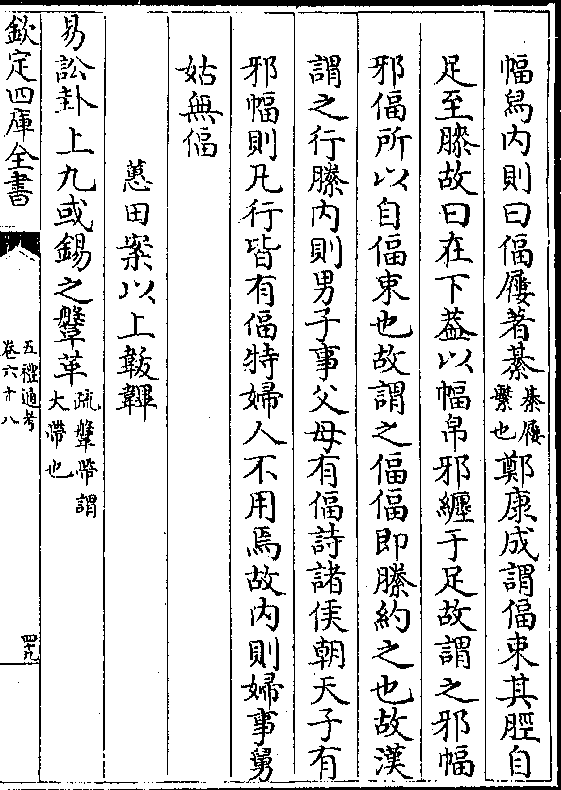 幅舄内則曰偪屨著綦綦屨
繫也鄭康成謂偪束其脛自
足至膝故曰在下葢以幅帛邪纒于足故謂之邪幅
邪偪所以自偪束也故謂之偪偪即縢約之也故漢
謂之行縢内則男子事父母有偪詩諸侯朝天子有
邪幅則凡行皆有偪特婦人不用焉故内則婦事舅
姑無偪
蕙田案以上韍韠
易訟卦上九或錫之鞶革疏鞶帶謂
大帶也
欽定四庫全書
五禮通考
卷六十八
四九